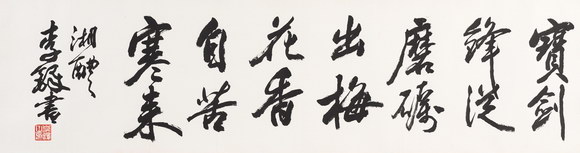 寶劍
鋒從
磨礪
出梅
花香
自苦
寒来
湘醴
李鐸書